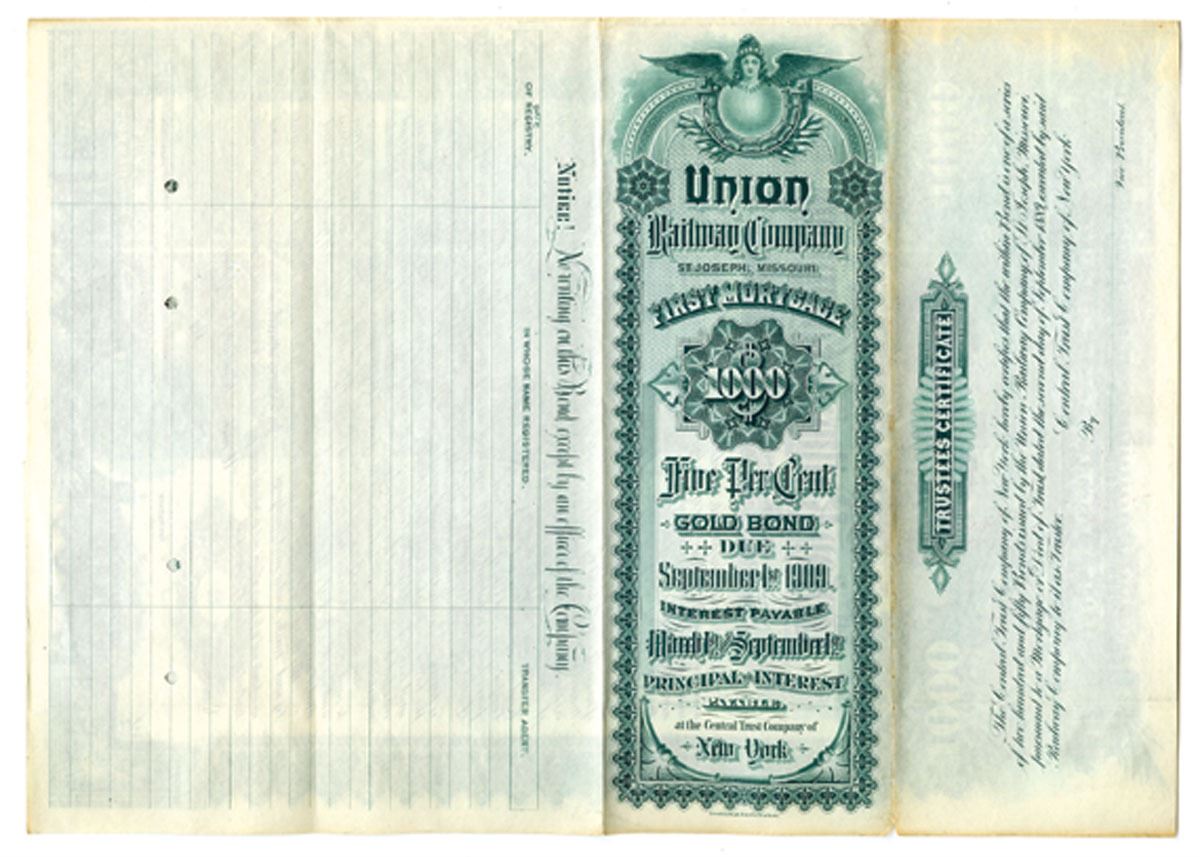 DATE
OF REGISTRY.
IN WHOSE NAME REGISTERED.
TRANSFER AGENT.
Notice! No writing on this Bond except by an officer of the Company.
Union
Railway Company
ST. JOSEPH, MISSOURI.
FIRST MORTGAGE
$
1000
Five Per Cent
GOLD BOND
DUE
September 1st 1909.
INTEREST PAYABLE
March 1st and September 1st
PRINCIPAL AND INTEREST
PAYABLE
at the Central Trust Company of
New York
TRUSTEES CERTIFICATE
The Central Trust Company of New York hereby certifies that the within Bond is one of a series
of two hundred and fifty Bonds issued by the Union Railway Company of St. Joseph, Missouri,
pursuant to a Mortgage or Deed of Trust dated the second day of September 1889, executed by said
Railway Company to it as Trustee.
Central Trust Company of New York
By
Vice President